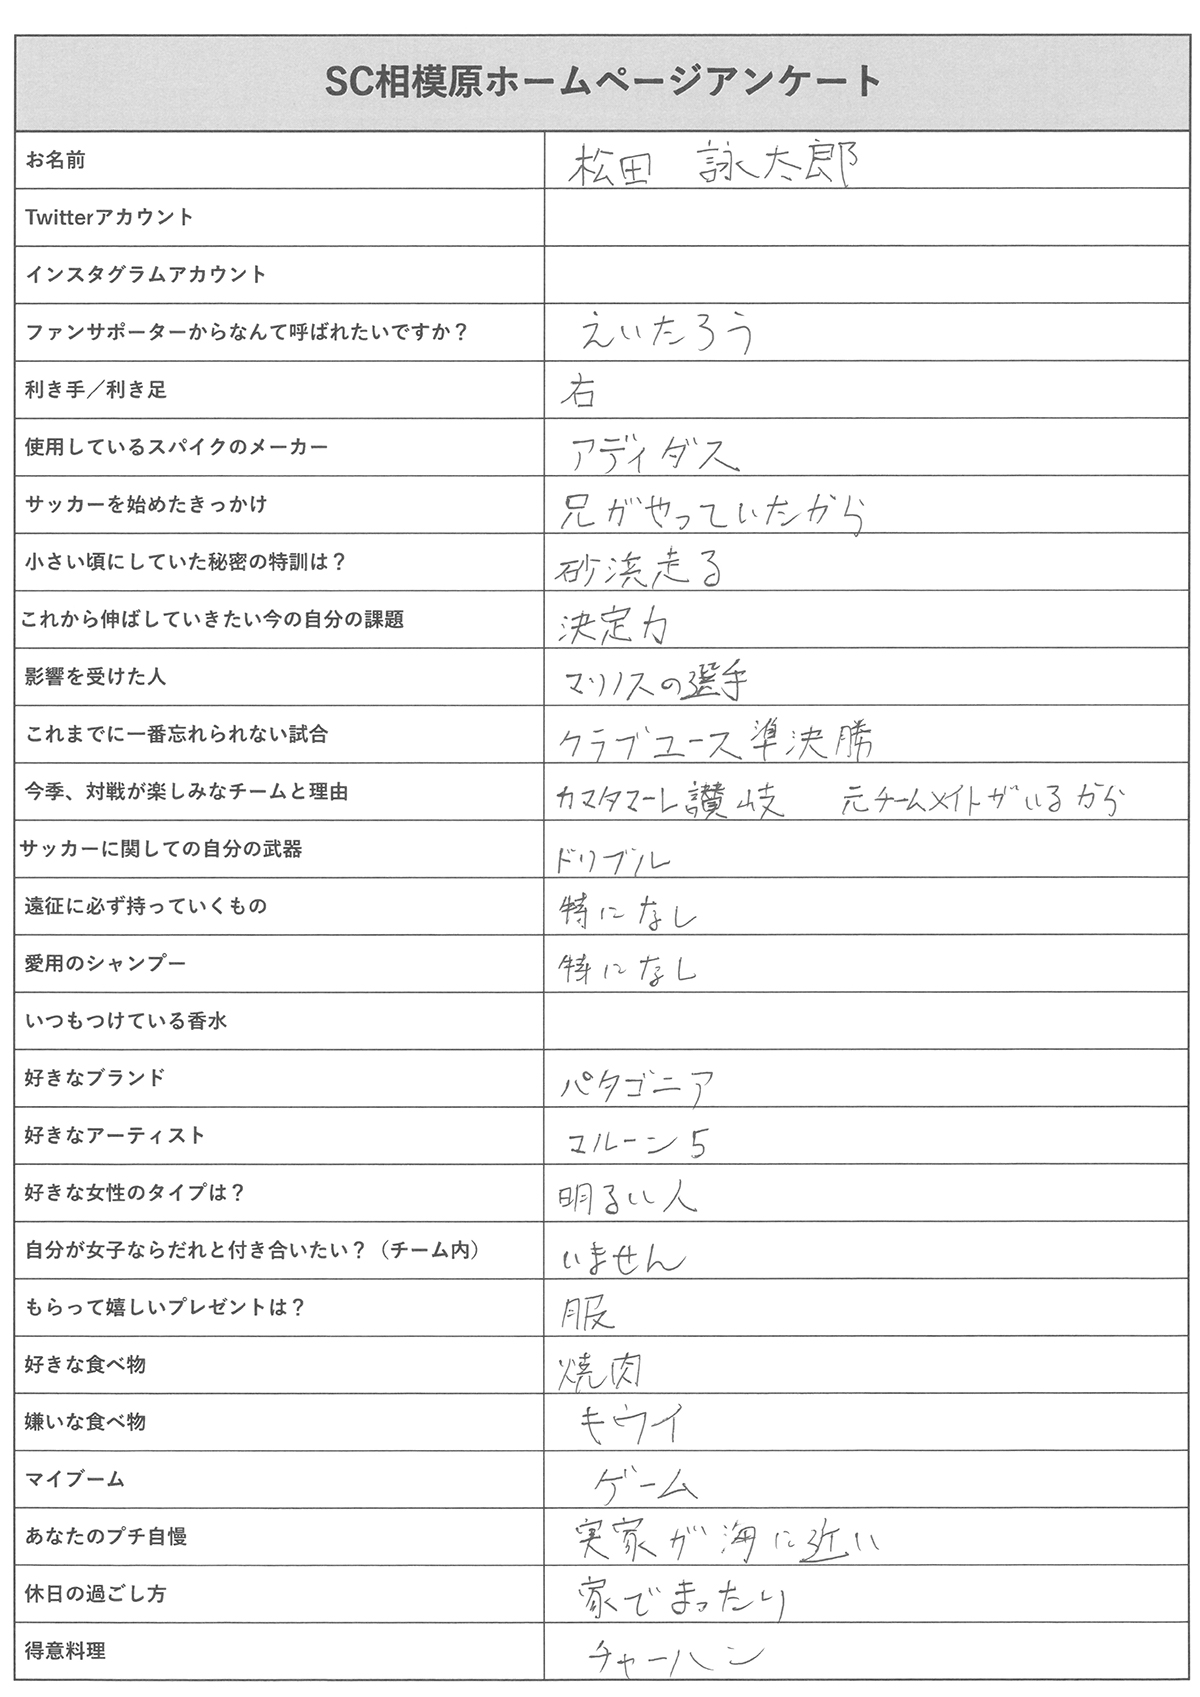 SC相模原ホームページアンケート
お名前 松田 詠太郎
Twitterアカウント
インスタグラムアカウント
ファンサポーターからなんて呼ばれたいですか？ えいたろう
利き手／利き足 右
使用しているスパイクのメーカー アディダス
サッカーを始めたきっかけ 兄がやっていたから
小さい頃にしていた秘密の特訓は？ 砂浜走る
これから伸ばしていきたい今の自分の課題 決定力
影響を受けた人 マリノスの選手
これまでに一番忘れられない試合 クラブユース準決勝
今季、対戦が楽しみなチームと理由 カマタマーレ讃岐 元チームメイトがいるから
サッカーに関しての自分の武器 ドリブル
遠征に必ず持っていくもの 特になし
愛用のシャンプー 特になし
いつもつけている香水
好きなブランド パタゴニア
好きなアーティスト マルーン5
好きな女性のタイプは？ 明るい人
自分が女子ならだれと付き合いたい？（チーム内） いません
もらって嬉しいプレゼントは？ 服
好きな食べ物 焼肉
嫌いな食べ物 キウイ
マイブーム ゲーム
あなたのプチ自慢 実家が海に近い
休日の過ごし方 家でまったり
得意料理 チャーハン